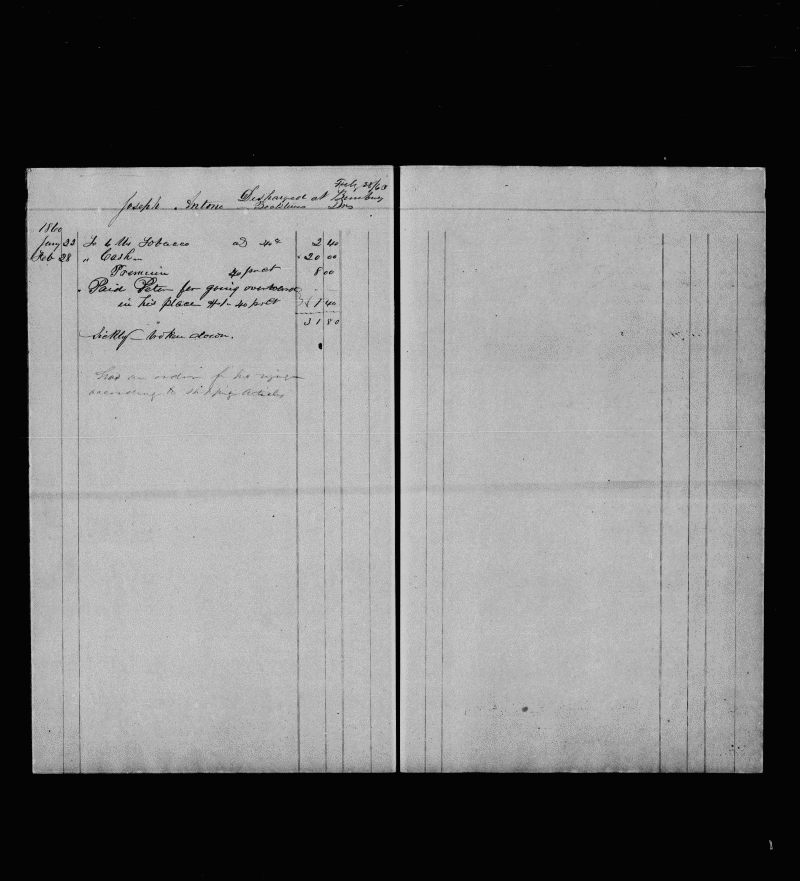 Feb, 28/60
Joseph Antone Discharged at
Boatsteerer Dr
1860
Jany 23 To 6 lbs Tobacco a 40c 2 40
Feb 28 " Cash 20 00
Premium 40 pr ct 8 00
" Paid Peter for going overboard
in his place $1- 40 prct 1 40
31 80
Sickly broken down.
has an order for his
according to shipping articles